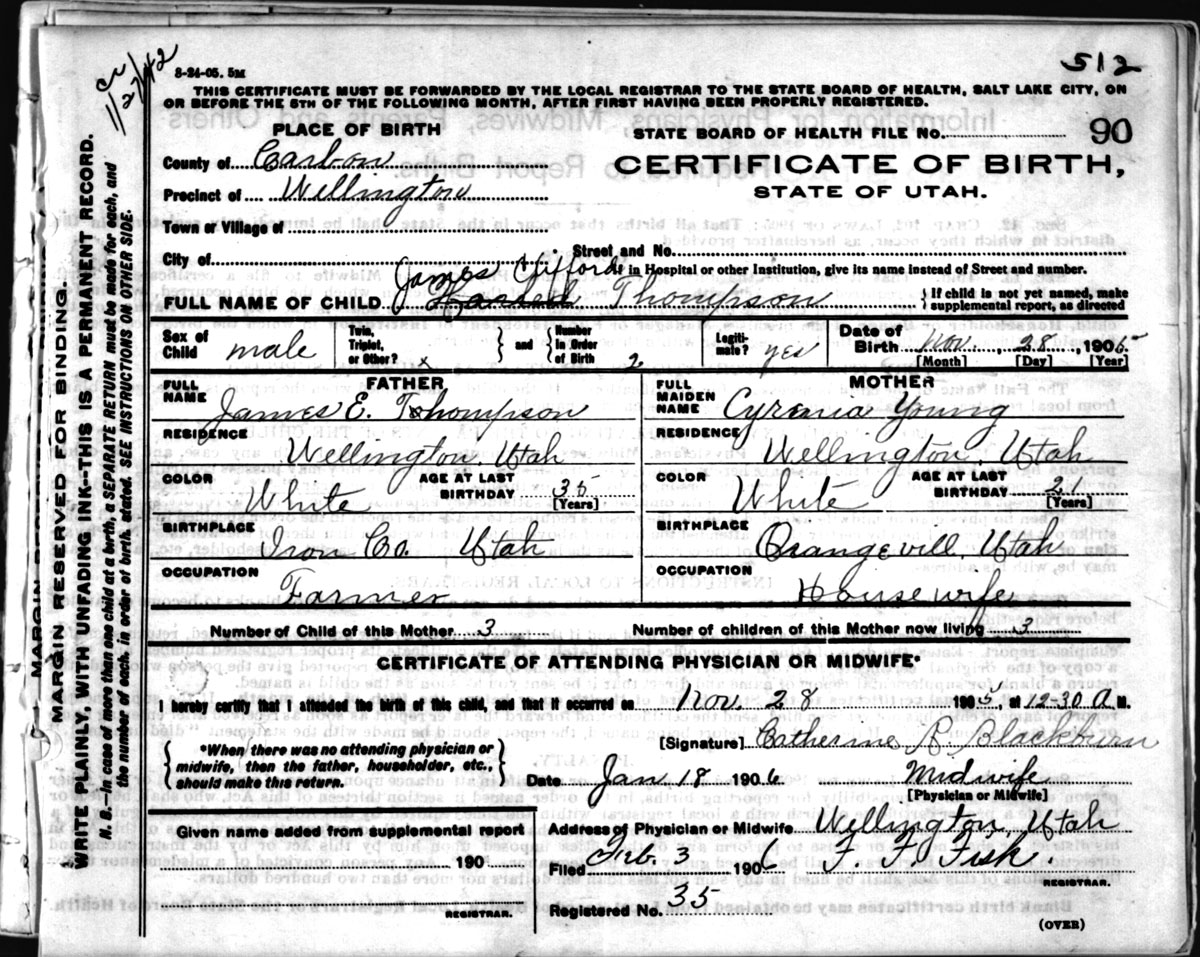 512
8-24-05. 5M
THIS CERTIFICATE MUST BE FORWARDED BY THE LOCAL REGISTRAR TO THE STATE BOARD OF HEALTH, SALT LAKE CITY, ON
OR BEFORE THE 5TH OF THE FOLLOWING MONTH, AFTER FIRST HAVING BEEN PROPERLY REGISTERED.
PLACE OF BIRTH
STATE BOARD OF HEALTH FILE No. 90
County of Carbon
CERTIFICATE OF BIRTH,
Precinct of Wellington
STATE OF UTAH.
Town or Village of
City of
Street and No.
If in Hospital or other Institution, give its name instead of Street and number.
James Clifford
FULL NAME OF CHILD Thompson
If child is not yet named, make
supplemental report, as directed
Sex of Child male
Twin, Triplet, or Other? x
and
Number in Order of Birth 2
Legiti-mate? yes
Date of Birth Nov. 28, 1905
[Month] [Day] [Year]
FATHER
FULL NAME James E. Thompson
RESIDENCE
Wellington, Utah
COLOR White
AGE AT LAST BIRTHDAY 35
[Years]
BIRTHPLACE
Iron Co. Utah
OCCUPATION
Farmer
MOTHER
FULL MAIDEN NAME Cyrenia Young
RESIDENCE
Wellington, Utah
COLOR White
AGE AT LAST BIRTHDAY 21
[Years]
BIRTHPLACE
Orangevill, Utah
OCCUPATION
Housewife
Number of Child of this Mother 3
Number of children of this Mother now living 3
CERTIFICATE OF ATTENDING PHYSICIAN OR MIDWIFE*
I hereby certify that I attended the birth of this child, and that it occurred on Nov. 28 1905, at 12-30 A M.
*When there was no attending physician or
midwife, then the father, householder, etc.,
should make this return.
[Signature] Catherine R. Blackburn
Date Jan 18 1906
Midwife
[Physician or Midwife]
Given name added from supplemental report
190
REGISTRAR.
Address of Physician or Midwife Wellington, Utah
Filed Feb. 3 1906 F F Fisk
REGISTRAR.
Registered No. 35
(OVER)
MARGIN RESERVED FOR BINDING.
WRITE PLAINLY, WITH UNFADING INK—THIS IS A PERMANENT RECORD.
N. B.—In case of more than one child at a birth, a SEPARATE RETURN must be made for each, and
the number of each, in order of birth, stated. SEE INSTRUCTIONS ON OTHER SIDE.